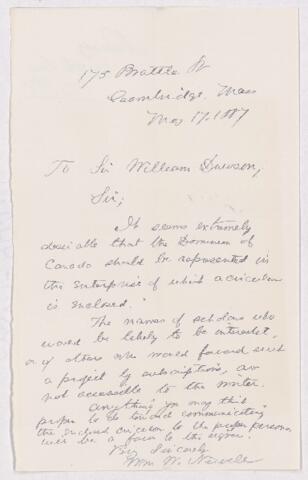 175 Brattle St
Cambridge, Mass
May 17, 1887
To Sir William Dawson,
Sir;
It seems extremely
desirable that the Dominion of
Canada should be represented in
the enterprise of which a circular
is enclosed.
The names of scholars who
would be likely to be interested,
or of others who would forward such
a project by subscriptions, are
not accessible to the writer.
Anything you may think
proper to do toward communicating
the enclosed circular to the proper persons
will be a favor to the signer.
Very Sincerely
Wm. W. Newell